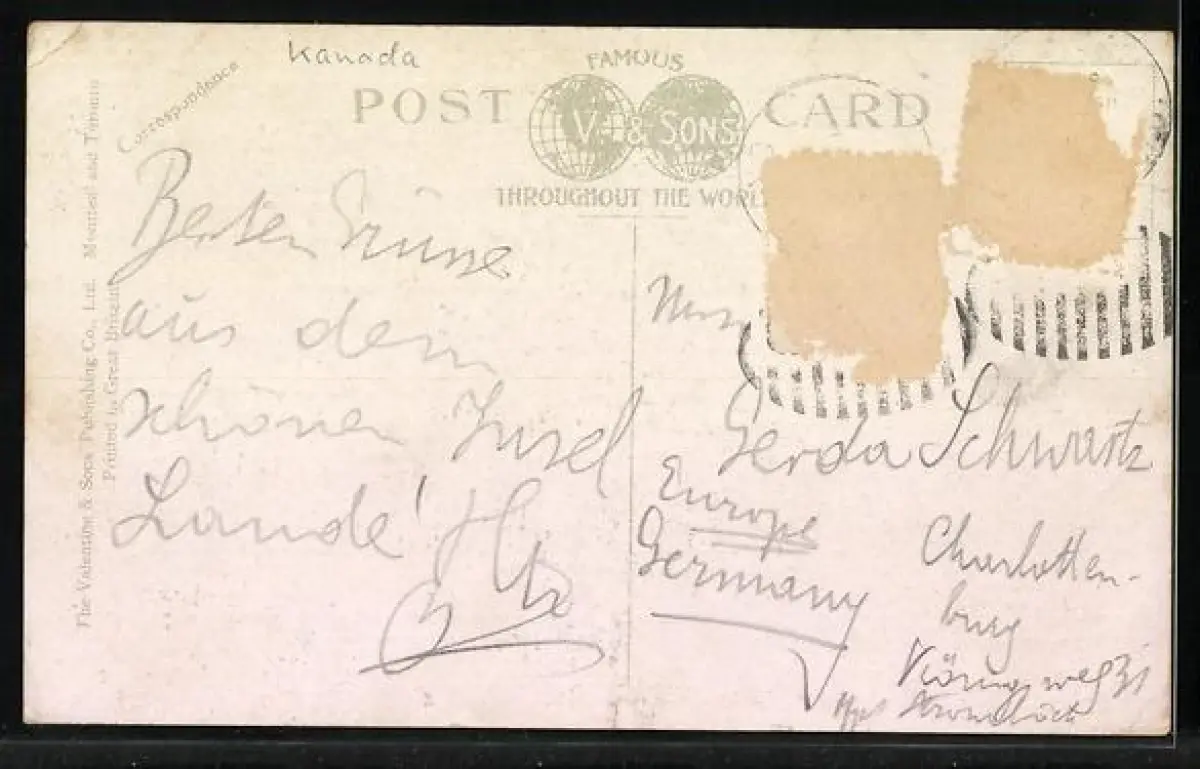 Kanada
Correspondence
FAMOUS
POST CARD
V. & SONS
THROUGHOUT THE WORL
The Valentine & Sons Publishing Co., Ltd. Montreal and Toronto
Printed in Great Britain
Besten Grüsse
aus dem
schönen Insel
Lande!
Gerda Schwartz
Europe
Germany
Charlotten-
burg
Königsweg 31